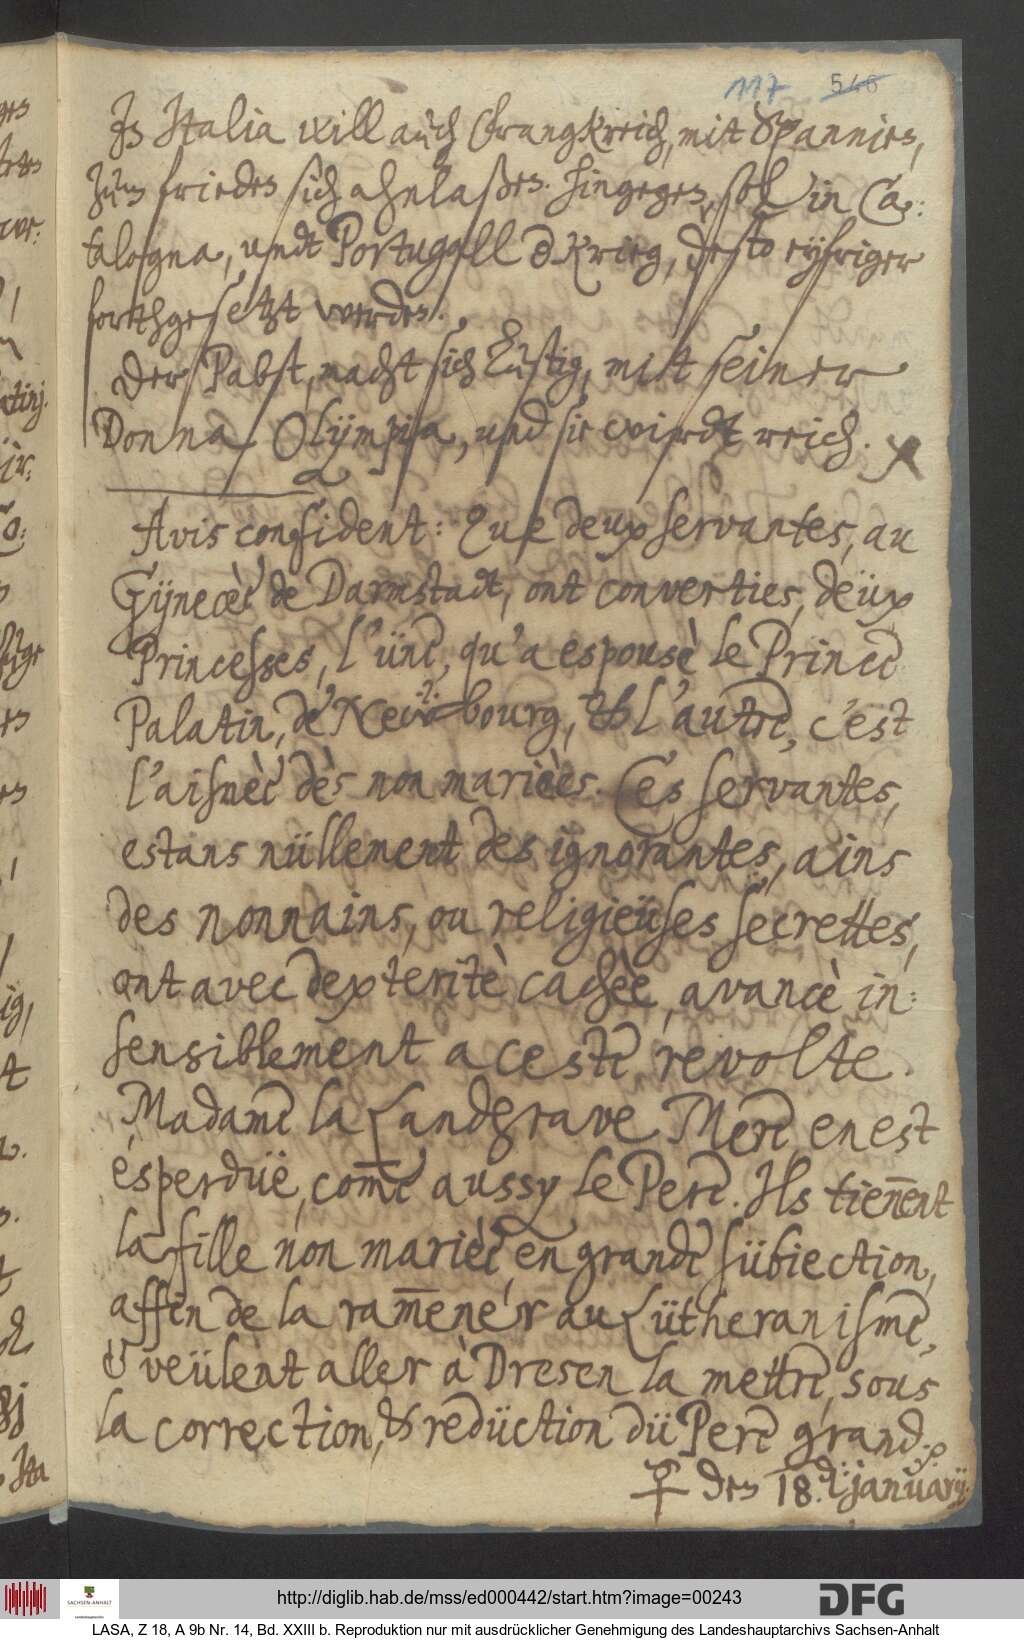 117 546
In Italia will auch Frangkreich, mit Spannien,
zum frieden sich anlaßen. Hingegen, soll in Ca:
talogna, undt Portugall der Krieg, desto eyfriger
forthgesetzt werden.
Der Pabst, macht sich lustig, mitt seiner
Donna Olympia, und sie wirdt reich.
Avis confident: Que deux servantes, au
Gÿnecèe de Darmstadt, ont converties, deüx
Princesses, l'üne, qu'a espousè le Prince
Palatin, de Newbourg, & l'autre, c'est
l'aisnèe dès non marièes. Ces servantes,
estans nüllement des ignorantes, ains
des nonnains, ou religieüses secrettes,
ont avec dexteritè cachèe, avancè in:
sensiblement a ceste revolte.
Madame la Landgrave Mere en est
esperdüe, com̅e aussy le Pere. Ils tien̅ent
la fille non marièe, en grande sübiection,
affin de la ram̅ener au Lütheranisme,
& veülent aller à Dresen la mettre, sous
la correction, & redüction dü Pere grand. p
♀ den 18. d: januarÿ.
http://diglib.hab.de/mss/ed000442/start.htm?image=00243
DFG
SACHSEN-ANHALT
LASA, Z 18, A 9b Nr. 14, Bd. XXIII b. Reproduktion nur mit ausdrücklicher Genehmigung des Landeshauptarchivs Sachsen-Anhalt